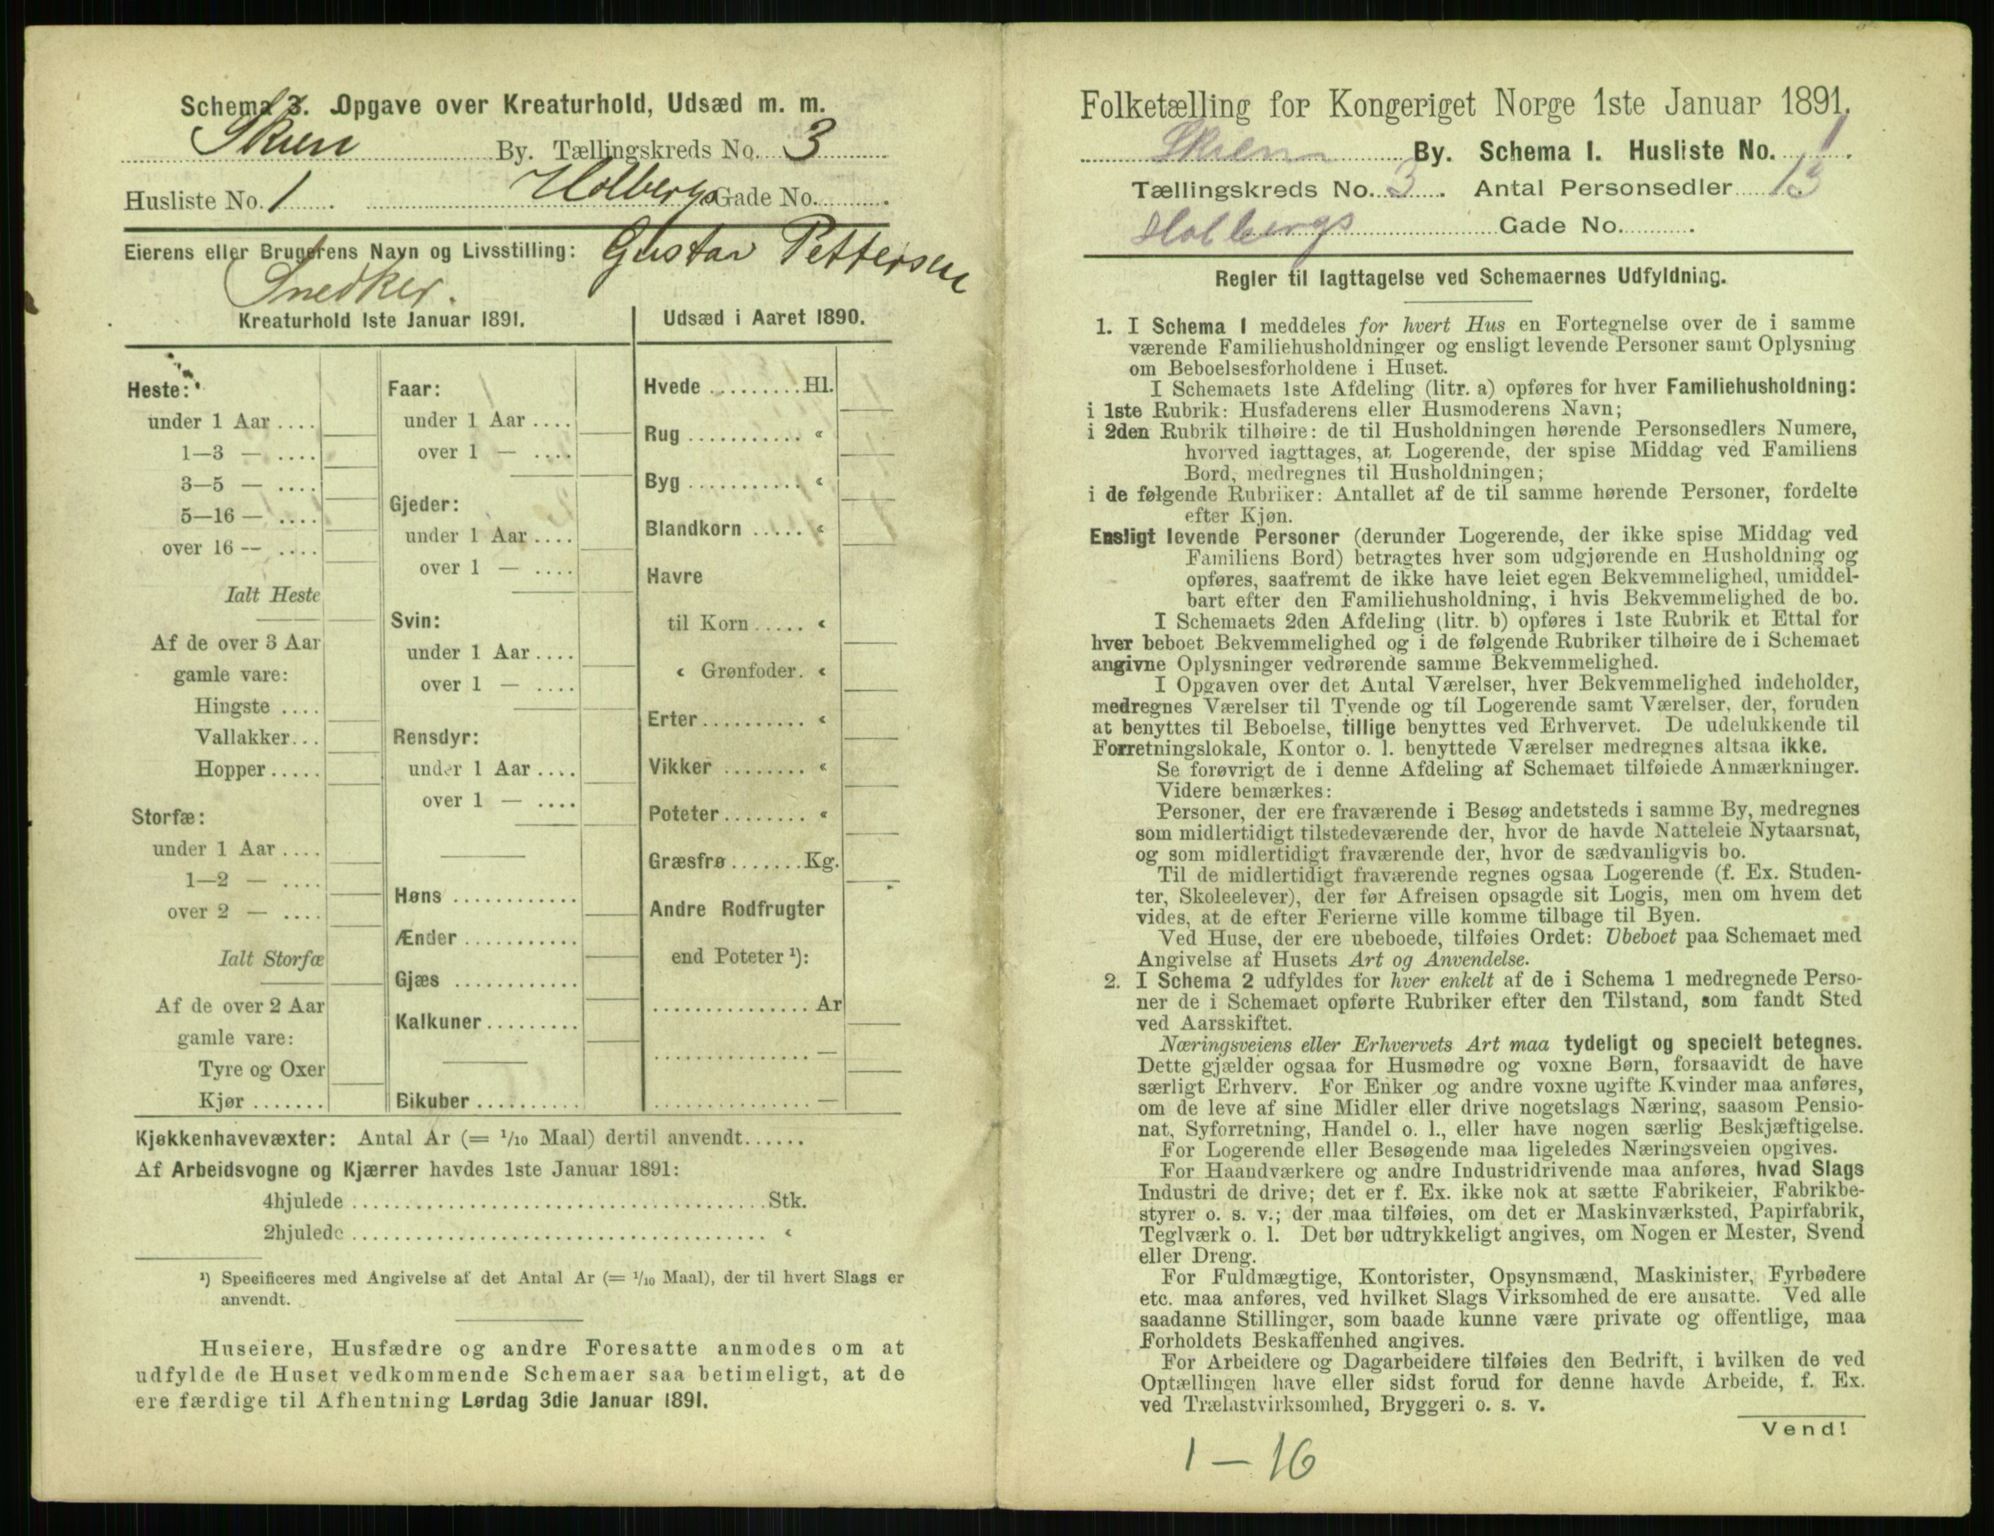 Schema 3. Opgave over Kreaturhold, Udsæd m. m.
Skien By. Tællingskreds No. 3
Husliste No. 1 Holbergs Gade No.
Eierens eller Brugerens Navn og Livsstilling: Gustav Pettersen
Snedker.
Kreaturhold 1ste Januar 1891.
Heste:
under 1 Aar ....
1—3 — ....
3—5 — ....
5—16 — ....
over 16 — ....
Ialt Heste
Af de over 3 Aar
gamle vare:
Hingste ....
Vallakker...
Hopper.....
Storfæ:
under 1 Aar ....
1—2 — ....
over 2 — ....
Ialt Storfæ
Af de over 2 Aar
gamle vare:
Tyre og Oxer
Kjør .......
Faar:
under 1 Aar ....
over 1 — ....
Gjeder:
under 1 Aar ....
over 1 — ....
Svin:
under 1 Aar ....
over 1 — ....
Rensdyr:
under 1 Aar ....
over 1 — ....
Høns ............
Ænder ...........
Gjæs ............
Kalkuner.........
Bikuber ..........
Udsæd i Aaret 1890.
Hvede .........Hl.
Rug ........... «
Byg ........... «
Blandkorn ..... «
Havre
til Korn ..... «
« Grønfoder. «
Erter......... «
Vikker ........ «
Poteter........ «
Græsfrø .......Kg.
Andre Rodfrugter
end Poteter ¹):
............... Ar
............... —
............... —
Kjøkkenhavevæxter: Antal Ar (= 1/10 Maal) dertil anvendt......
Af Arbeidsvogne og Kjærrer havdes 1ste Januar 1891:
4hjulede ......................................Stk.
2hjulede ...................................... «
¹) Specificeres med Angivelse af det Antal Ar (= 1/10 Maal), der til hvert Slags er
anvendt.
Huseiere, Husfædre og andre Foresatte anmodes om at
udfylde de Huset vedkommende Schemaer saa betimeligt, at de
ere færdige til Afhentning Lørdag 3die Januar 1891.
Folketælling for Kongeriget Norge 1ste Januar 1891.
Skien By. Schema 1. Husliste No. 1
Tællingskreds No. 3. Antal Personsedler 13
Holbergs Gade No.
Regler til Iagttagelse ved Schemaernes Udfyldning.
1. I Schema 1 meddeles for hvert Hus en Fortegnelse over de i samme
værende Familiehusholdninger og ensligt levende Personer samt Oplysning
om Beboelsesforholdene i Huset.
I Schemaets 1ste Afdeling (litr. a) opføres for hver Familiehusholdning:
i 1ste Rubrik: Husfaderens eller Husmoderens Navn;
i 2den Rubrik tilhøire: de til Husholdningen hørende Personsedlers Numere,
hvorved iagttages, at Logerende, der spise Middag ved Familiens
Bord, medregnes til Husholdningen;
i de følgende Rubriker: Antallet af de til samme hørende Personer, fordelte
efter Kjøn.
Ensligt levende Personer (derunder Logerende, der ikke spise Middag ved
Familiens Bord) betragtes hver som udgjørende en Husholdning og
opføres, saafremt de ikke have leiet egen Bekvemmelighed, umiddel-
bart efter den Familiehusholdning, i hvis Bekvemmelighed de bo.
I Schemaets 2den Afdeling (litr. b) opføres i 1ste Rubrik et Ettal for
hver beboet Bekvemmelighed og i de følgende Rubriker tilhøire de i Schemaet
angivne Oplysninger vedrørende samme Bekvemmelighed.
I Opgaven over det Antal Værelser, hver Bekvemmelighed indeholder,
medregnes Værelser til Tyende og til Logerende samt Værelser, der, foruden
at benyttes til Beboelse, tillige benyttes ved Erhvervet. De udelukkende til
Forretningslokale, Kontor o. l. benyttede Værelser medregnes altsaa ikke.
Se forøvrigt de i denne Afdeling af Schemaet tilføiede Anmærkninger.
Videre bemærkes:
Personer, der ere fraværende i Besøg andetsteds i samme By, medregnes
som midlertidigt tilstedeværende der, hvor de havde Natteleie Nytaarsnat,
og som midlertidigt fraværende der, hvor de sædvanligvis bo.
Til de midlertidigt fraværende regnes ogsaa Logerende (f. Ex. Studen-
ter, Skoleelever), der før Afreisen opsagde sit Logis, men om hvem det
vides, at de efter Ferierne ville komme tilbage til Byen.
Ved Huse, der ere ubeboede, tilføies Ordet: Ubeboet paa Schemaet med
Angivelse af Husets Art og Anvendelse.
2. I Schema 2 udfyldes for hver enkelt af de i Schema 1 medregnede Perso-
ner de i Schemaet opførte Rubriker efter den Tilstand, som fandt Sted
ved Aarsskiftet.
Næringsveiens eller Erhvervets Art maa tydeligt og specielt betegnes.
Dette gjælder ogsaa for Husmødre og voxne Børn, forsaavidt de have
særligt Erhverv. For Enker og andre voxne ugifte Kvinder maa anføres,
om de leve af sine Midler eller drive nogetslags Næring, saasom Pensio-
nat, Syforretning, Handel o. l., eller have nogen særlig Beskjæftigelse.
For Logerende eller Besøgende maa ligeledes Næringsveien opgives.
For Haandværkere og andre Industridrivende maa anføres, hvad Slags
Industri de drive; det er f. Ex. ikke nok at sætte Fabrikeier, Fabrikbe-
styrer o. s. v.; der maa tilføies, om det er Maskinværksted, Papirfabrik,
Teglværk o. l. Det bør udtrykkeligt angives, om Nogen er Mester, Svend
eller Dreng.
For Fuldmægtige, Kontorister, Opsynsmænd, Maskinister, Fyrbødere
etc. maa anføres, ved hvilket Slags Virksomhed de ere ansatte. Ved alle
saadanne Stillinger, som baade kunne være private og offentlige, maa
Forholdets Beskaffenhed angives.
For Arbeidere og Dagarbeidere tilføies den Bedrift, i hvilken de ved
Optællingen have eller sidst forud for denne havde Arbeide, f. Ex.
ved Trælastvirksomhed, Bryggeri o. s. v.
Vend!
1 — 16